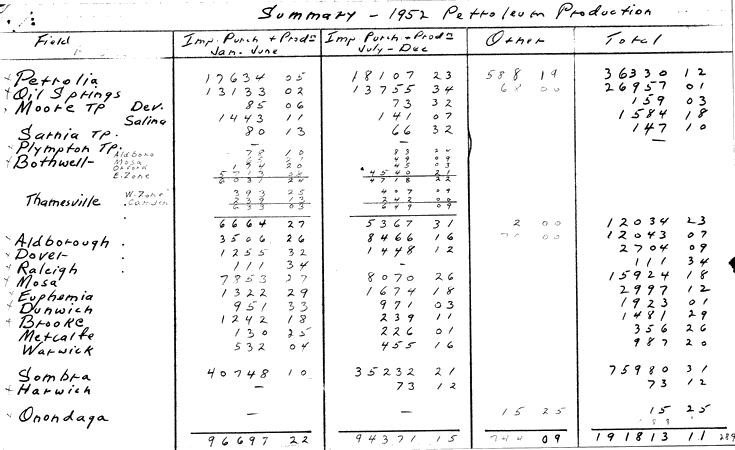 Summary - 1952 Petroleum Production
Field Imp. Purch + Prodn Jan.-June Imp Purch + Prodn July-Dec Other Total
Petrolia 17634 05 18107 23 588 19 36330 12
Oil Springs 13133 02 13755 34 68 00 26957 01
Moore TP Dev. 85 06 73 32 159 03
Salina 1443 11 141 07 1584 18
Sarnia TP. 80 13 66 32 147 10
Plympton TP. - - -
Bothwell - Aldboro 78 10 83 24
Mosa 49 09
Orford 174 20 45 03
E. Zone 4540 21
6037 24 4718 22
Thamesville W-Zone 393 25 407 09
Camden 239 13 242 00
633 03 649 09
6664 27 5367 31 2 00 12034 23
Aldborough 3506 26 8466 16 00 12043 07
Dover 1255 32 1448 12 2704 09
Raleigh 111 34 - 111 34
Mosa 7853 27 8070 26 15924 18
Euphemia 1322 29 1674 18 2997 12
Dunwich 951 33 971 03 1923 01
Brooke 1242 18 239 11 1481 29
Metcalfe 130 25 226 01 356 26
Warwick 532 04 455 16 987 20
Sombra 40748 10 35232 21 75980 31
Harwich - 73 12 73 12
Onondaga - - 15 25 15 25
96697 22 94371 15 744 09 191813 11 289